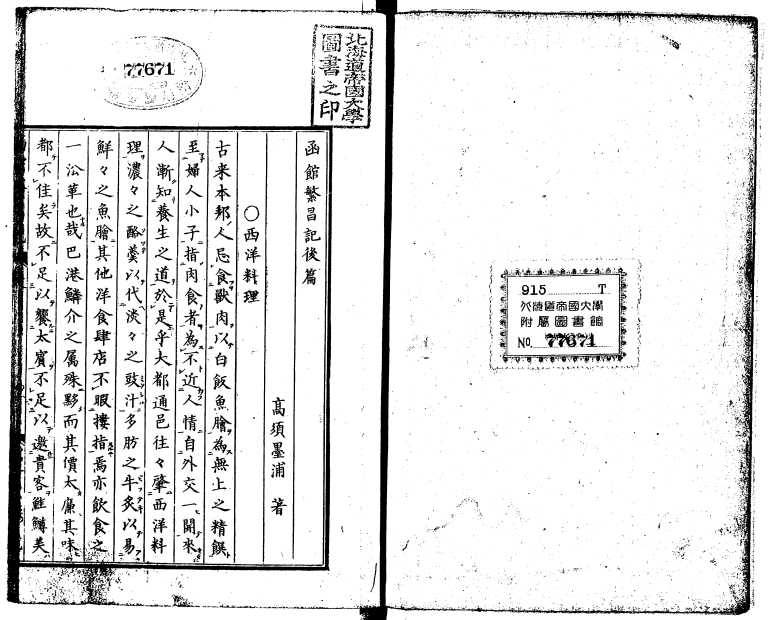 915 T
北海道帝國大學
附屬圖書館
No. 77671
北海道帝國大學
圖書之印
77671
函館繁昌記後篇
高須墨浦 著
○西洋料理
古来本邦人忌食獸肉以白飯魚膾為無上之精饌
至婦人小子指肉食者為不近人情自外交一開來
人漸知養生之道於是乎大都通邑往々肇西洋料
理濃々之酪羹以代淡々之豉汁多肪之牛炙以易
鮮々之魚膾其他洋食肆店不暇摟指焉亦飲食之
一㳂革也哉巴港鱗介之属殊夥而其價太廉其味
都不佳矣故不足以饗太賓不足以邀貴客鮭鱒美